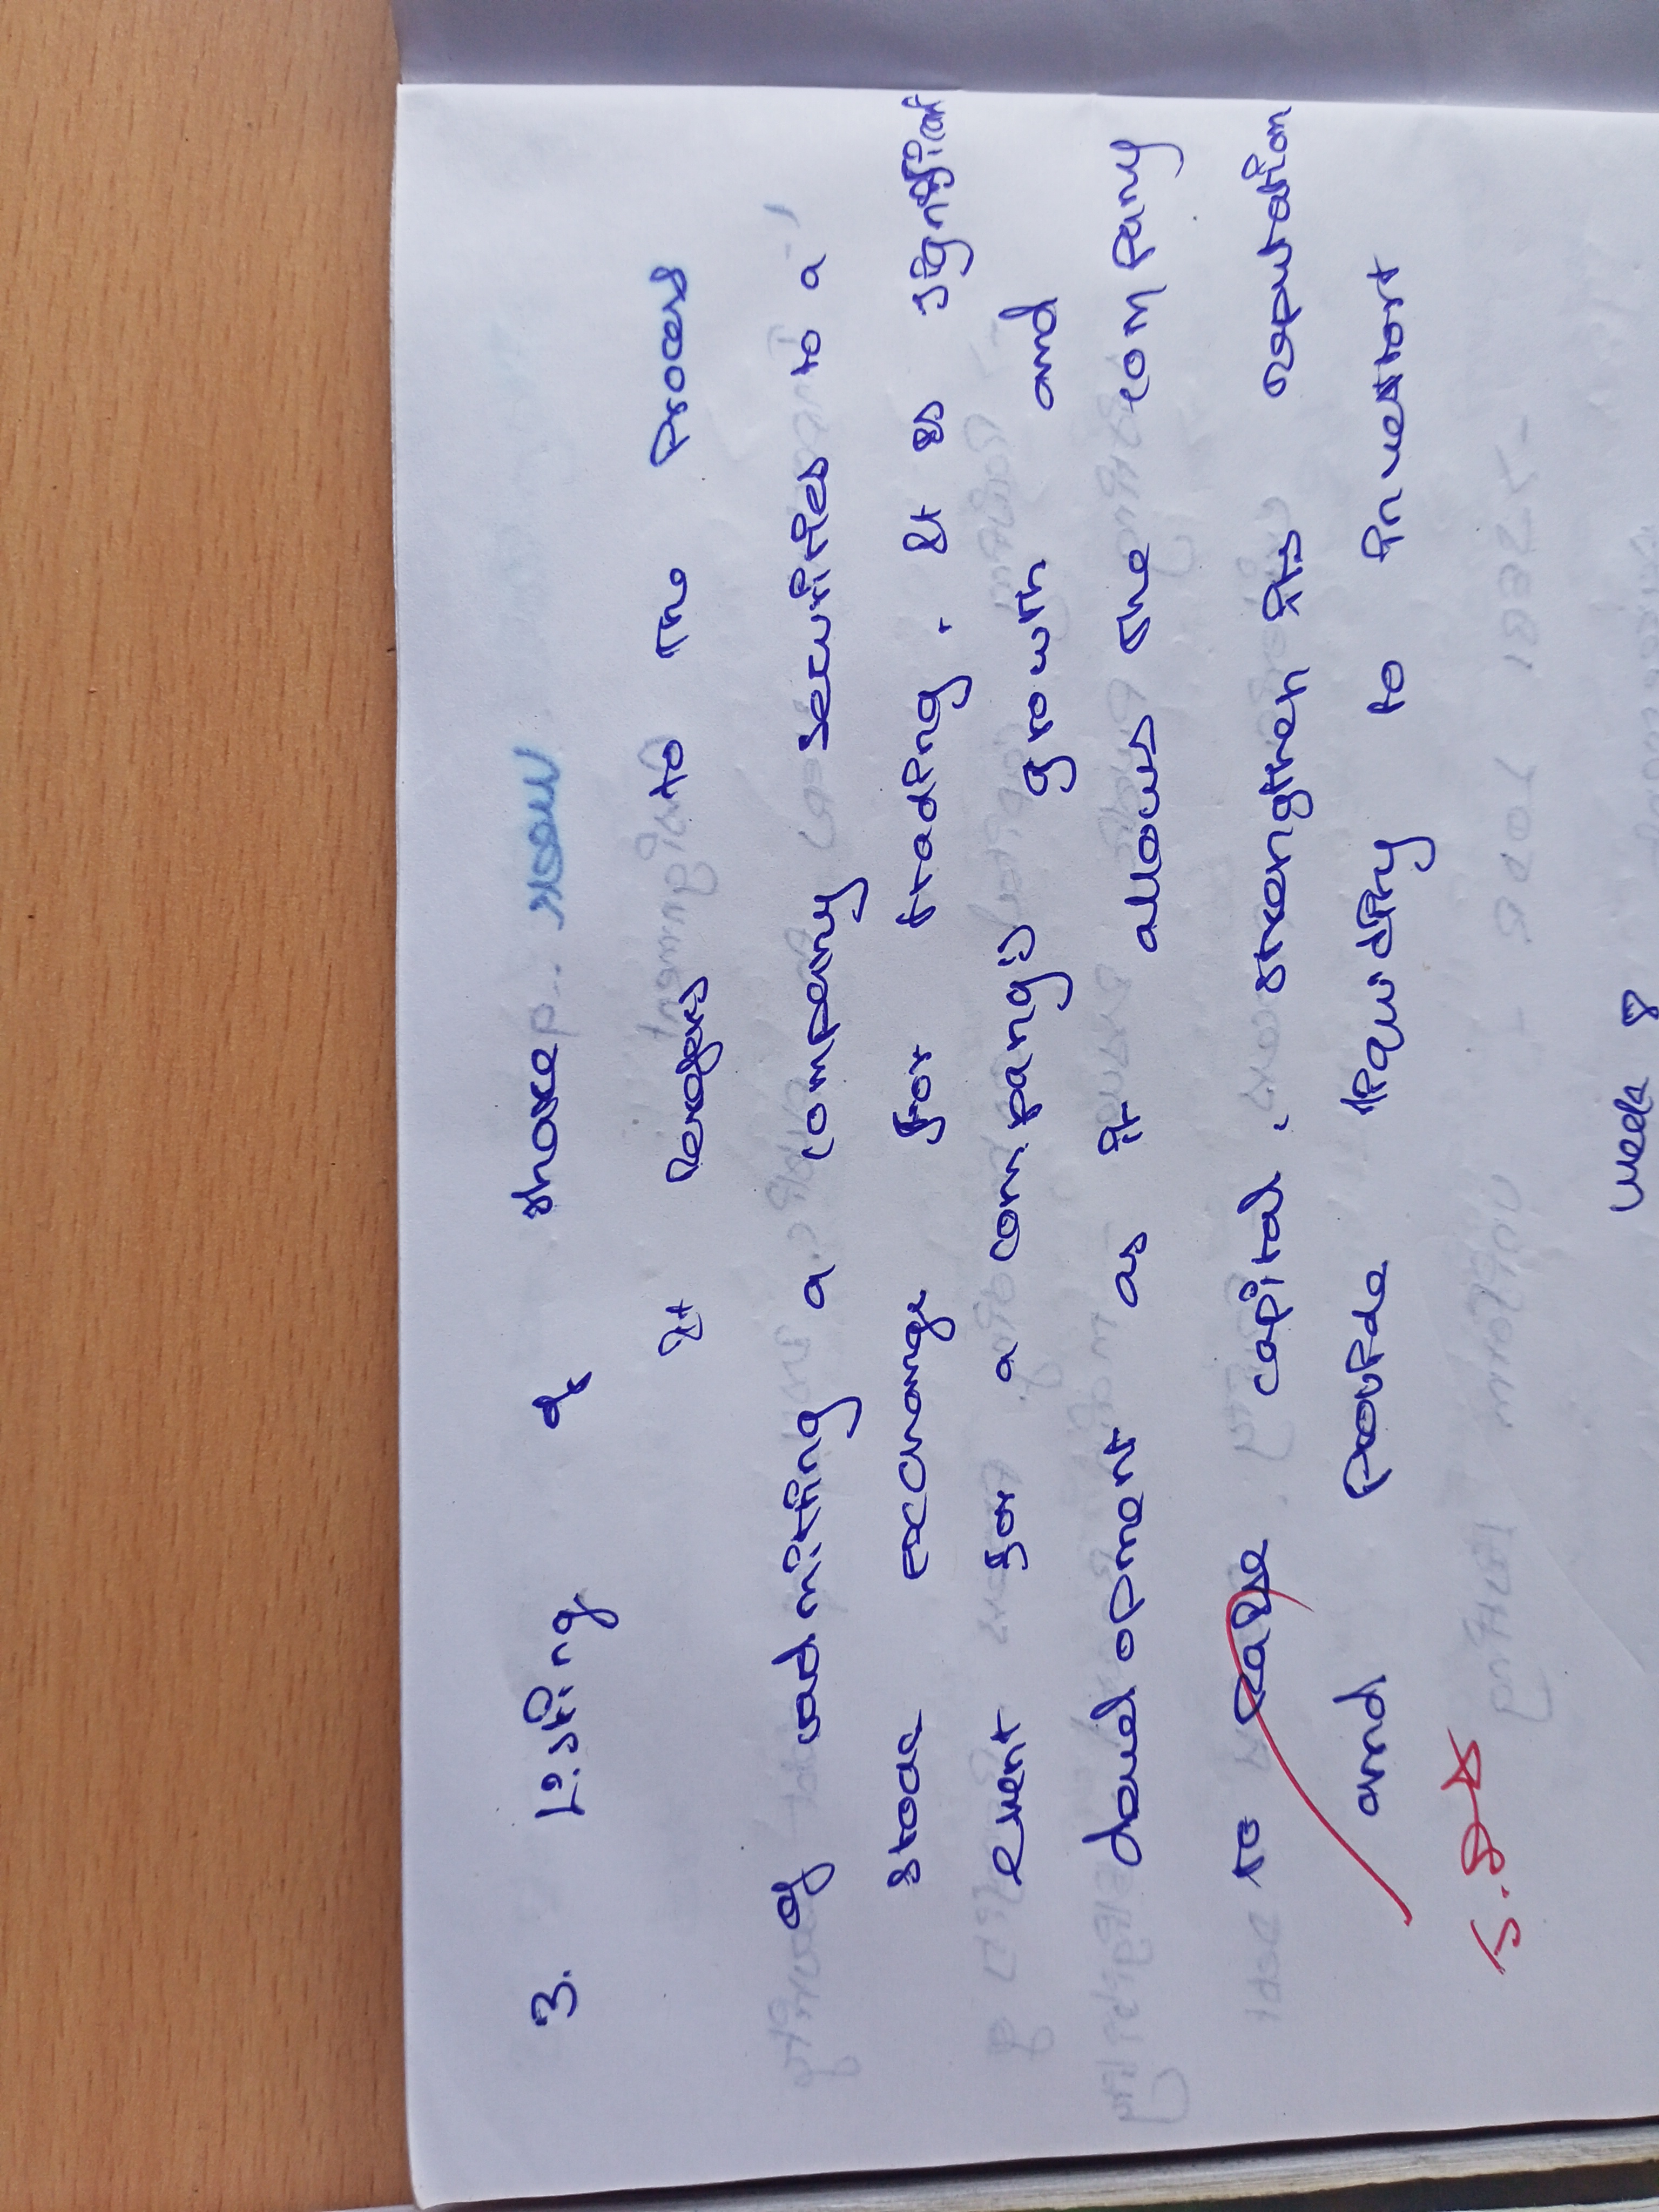 3. Listing of share
It refers to the process
of admitting a company securities to a
stock exchange for trading. It is significant
event for a company's growth and
development as it allows the company
to raise capital, strengthen its reputation
and provide liquidity to investors
week 8